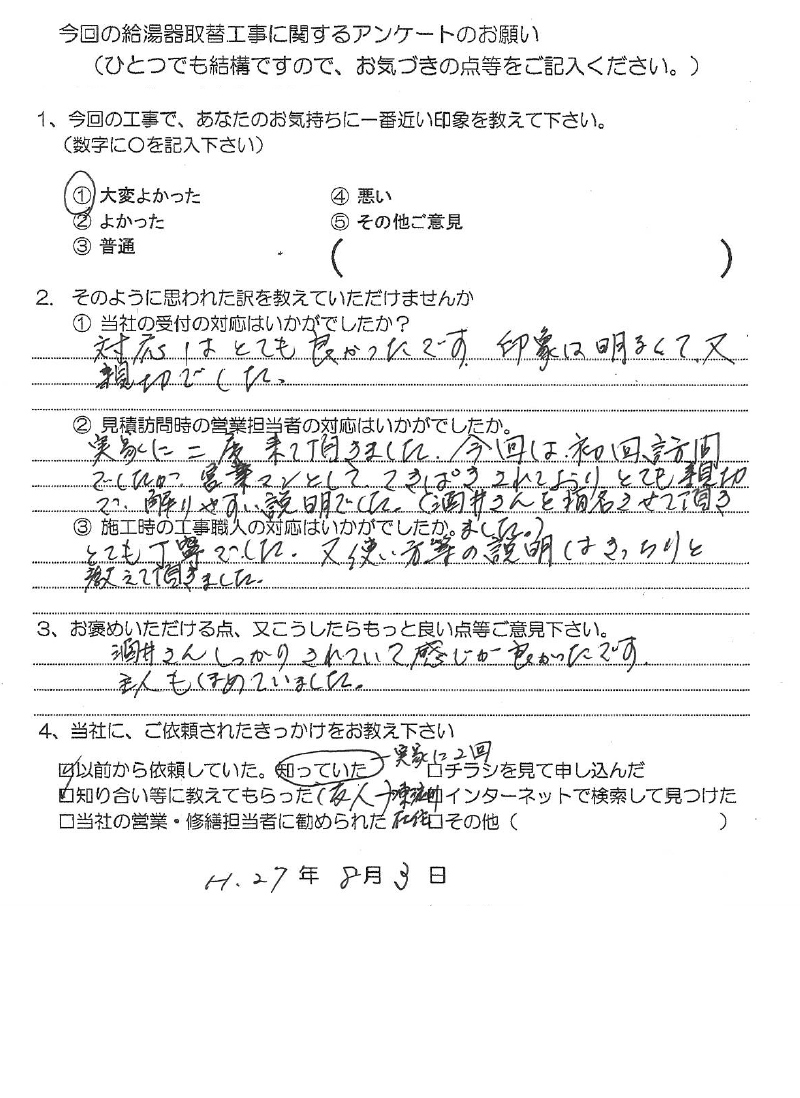 今回の給湯器取替工事に関するアンケートのお願い
（ひとつでも結構ですので、お気づきの点等をご記入ください。）
1、今回の工事で、あなたのお気持ちに一番近い印象を教えて下さい。
（数字に〇を記入下さい）
① 大変よかった ④ 悪い
② よかった ⑤ その他ご意見
③ 普通 （ ）
2. そのように思われた訳を教えていただけませんか
① 当社の受付の対応はいかがでしたか？
対応はとても良かったです。印象は明るくて、又
親切でした。
② 見積訪問時の営業担当者の対応はいかがでしたか。
実家に二度来て頂きました。今回は、初回訪問
でしたが、営業マンとして、てきぱきされており とても親切
で、解りやすい説明でした。（酒井さんを指名させて頂き
ました。）
③ 施工時の工事職人の対応はいかがでしたか。
とても丁寧でした。又使い方等の説明はきっちりと
教えて頂きました。
3、お褒めいただける点、又こうしたらもっと良い点等ご意見下さい。
酒井さんしっかりされていて感じが良かったです。
主人もほめていました。
4、当社に、ご依頼されたきっかけをお教え下さい
☑以前から依頼していた。知っていた 実家に2回 □チラシを見て申し込んだ
☑知り合い等に教えてもらった（友人 □インターネットで検索して見つけた
□当社の営業・修繕担当者に勧められた 在住 □その他（ ）
H.27年 8月 3日